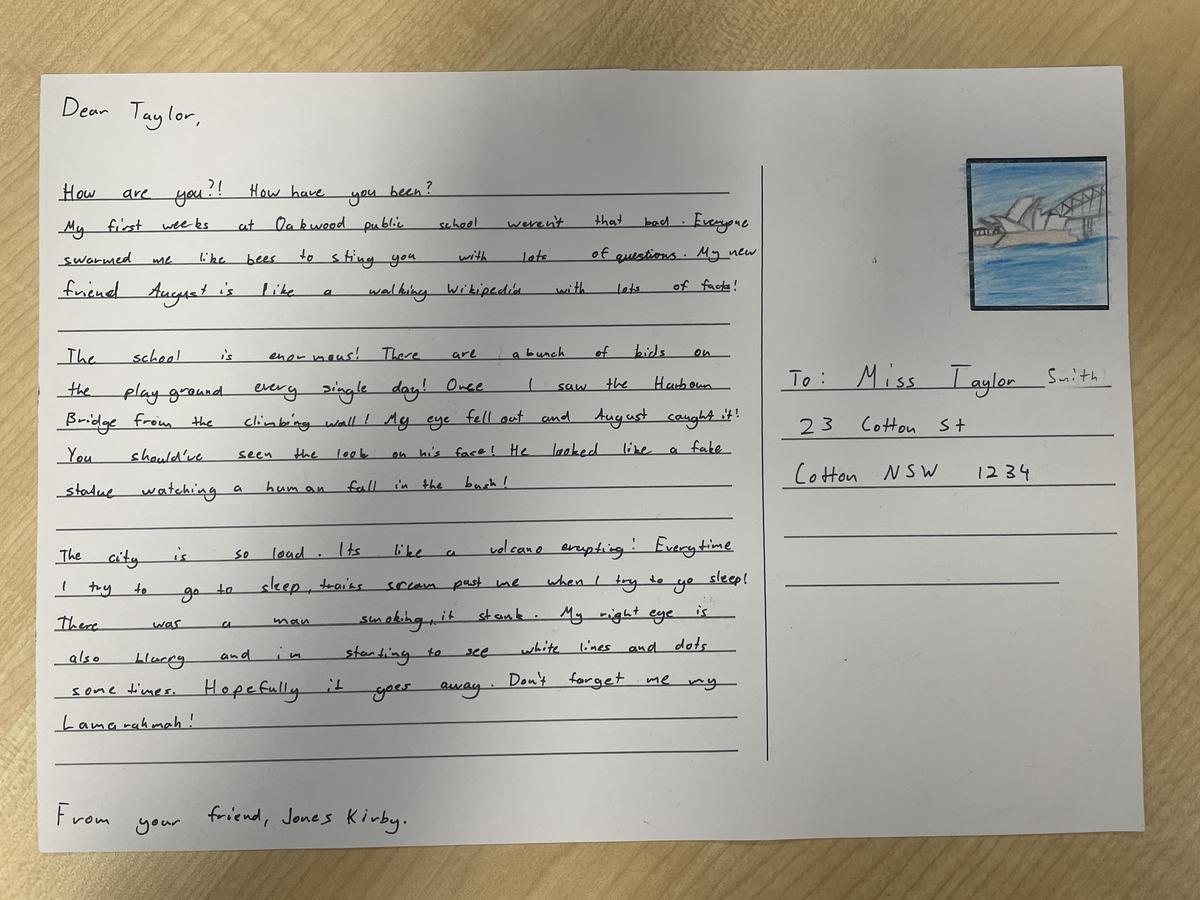 Dear Taylor,
How are you?! How have you been?
My first weeks at Oakwood public school weren't that bad. Everyone
swarmed me like bees to sting you with lots of questions. My new
friend August is like a walking Wikipedia with lots of facts!
The school is enormous! There are a bunch of kids on
the playground every single day! Once I saw the Harboun
Bridge from the climbing wall! My eye fell out and August caught it!
You should've seen the look on his face! He looked like a fake
statue watching a human fall in the bush!
The city is so load. Its like a volcano erupting! Everytime
I try to go to sleep, trains scream past me when I try to go sleep!
There was a man smoking, it stank. My right eye is
also blurry and im starting to see white lines and dots
sometimes. Hopefully it goes away. Don't forget me my
Lamarahmah!
From your friend, Jones Kirby.
To: Miss Taylor Smith
23 Cotton St
Cotton NSW 1234